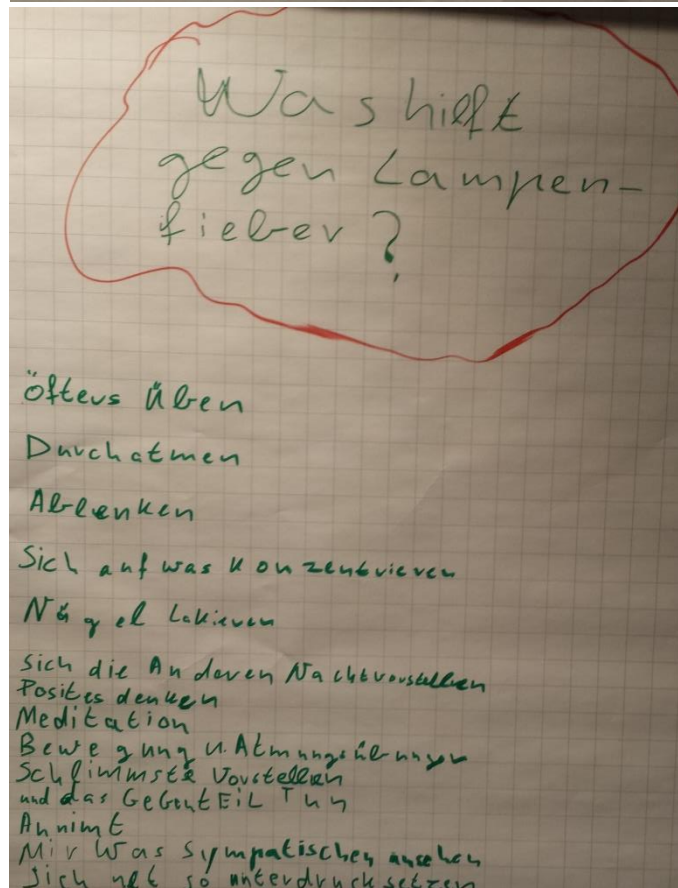 Was hilft
gegen Lampen-
fieber?
Öfters Üben
Durchatmen
Ablenken
Sich auf was konzentrieren
Nägel Lakieren
Sich die Anderen Nacktvorstellen
Posites denken
Meditation
Bewegung u. Atmungsübungen
Schlimmste Vorstellen
und das GeGentEiL Tun
Annimt
Mir Was Sympatischen ansehen
Sich net so unterdruck setzen